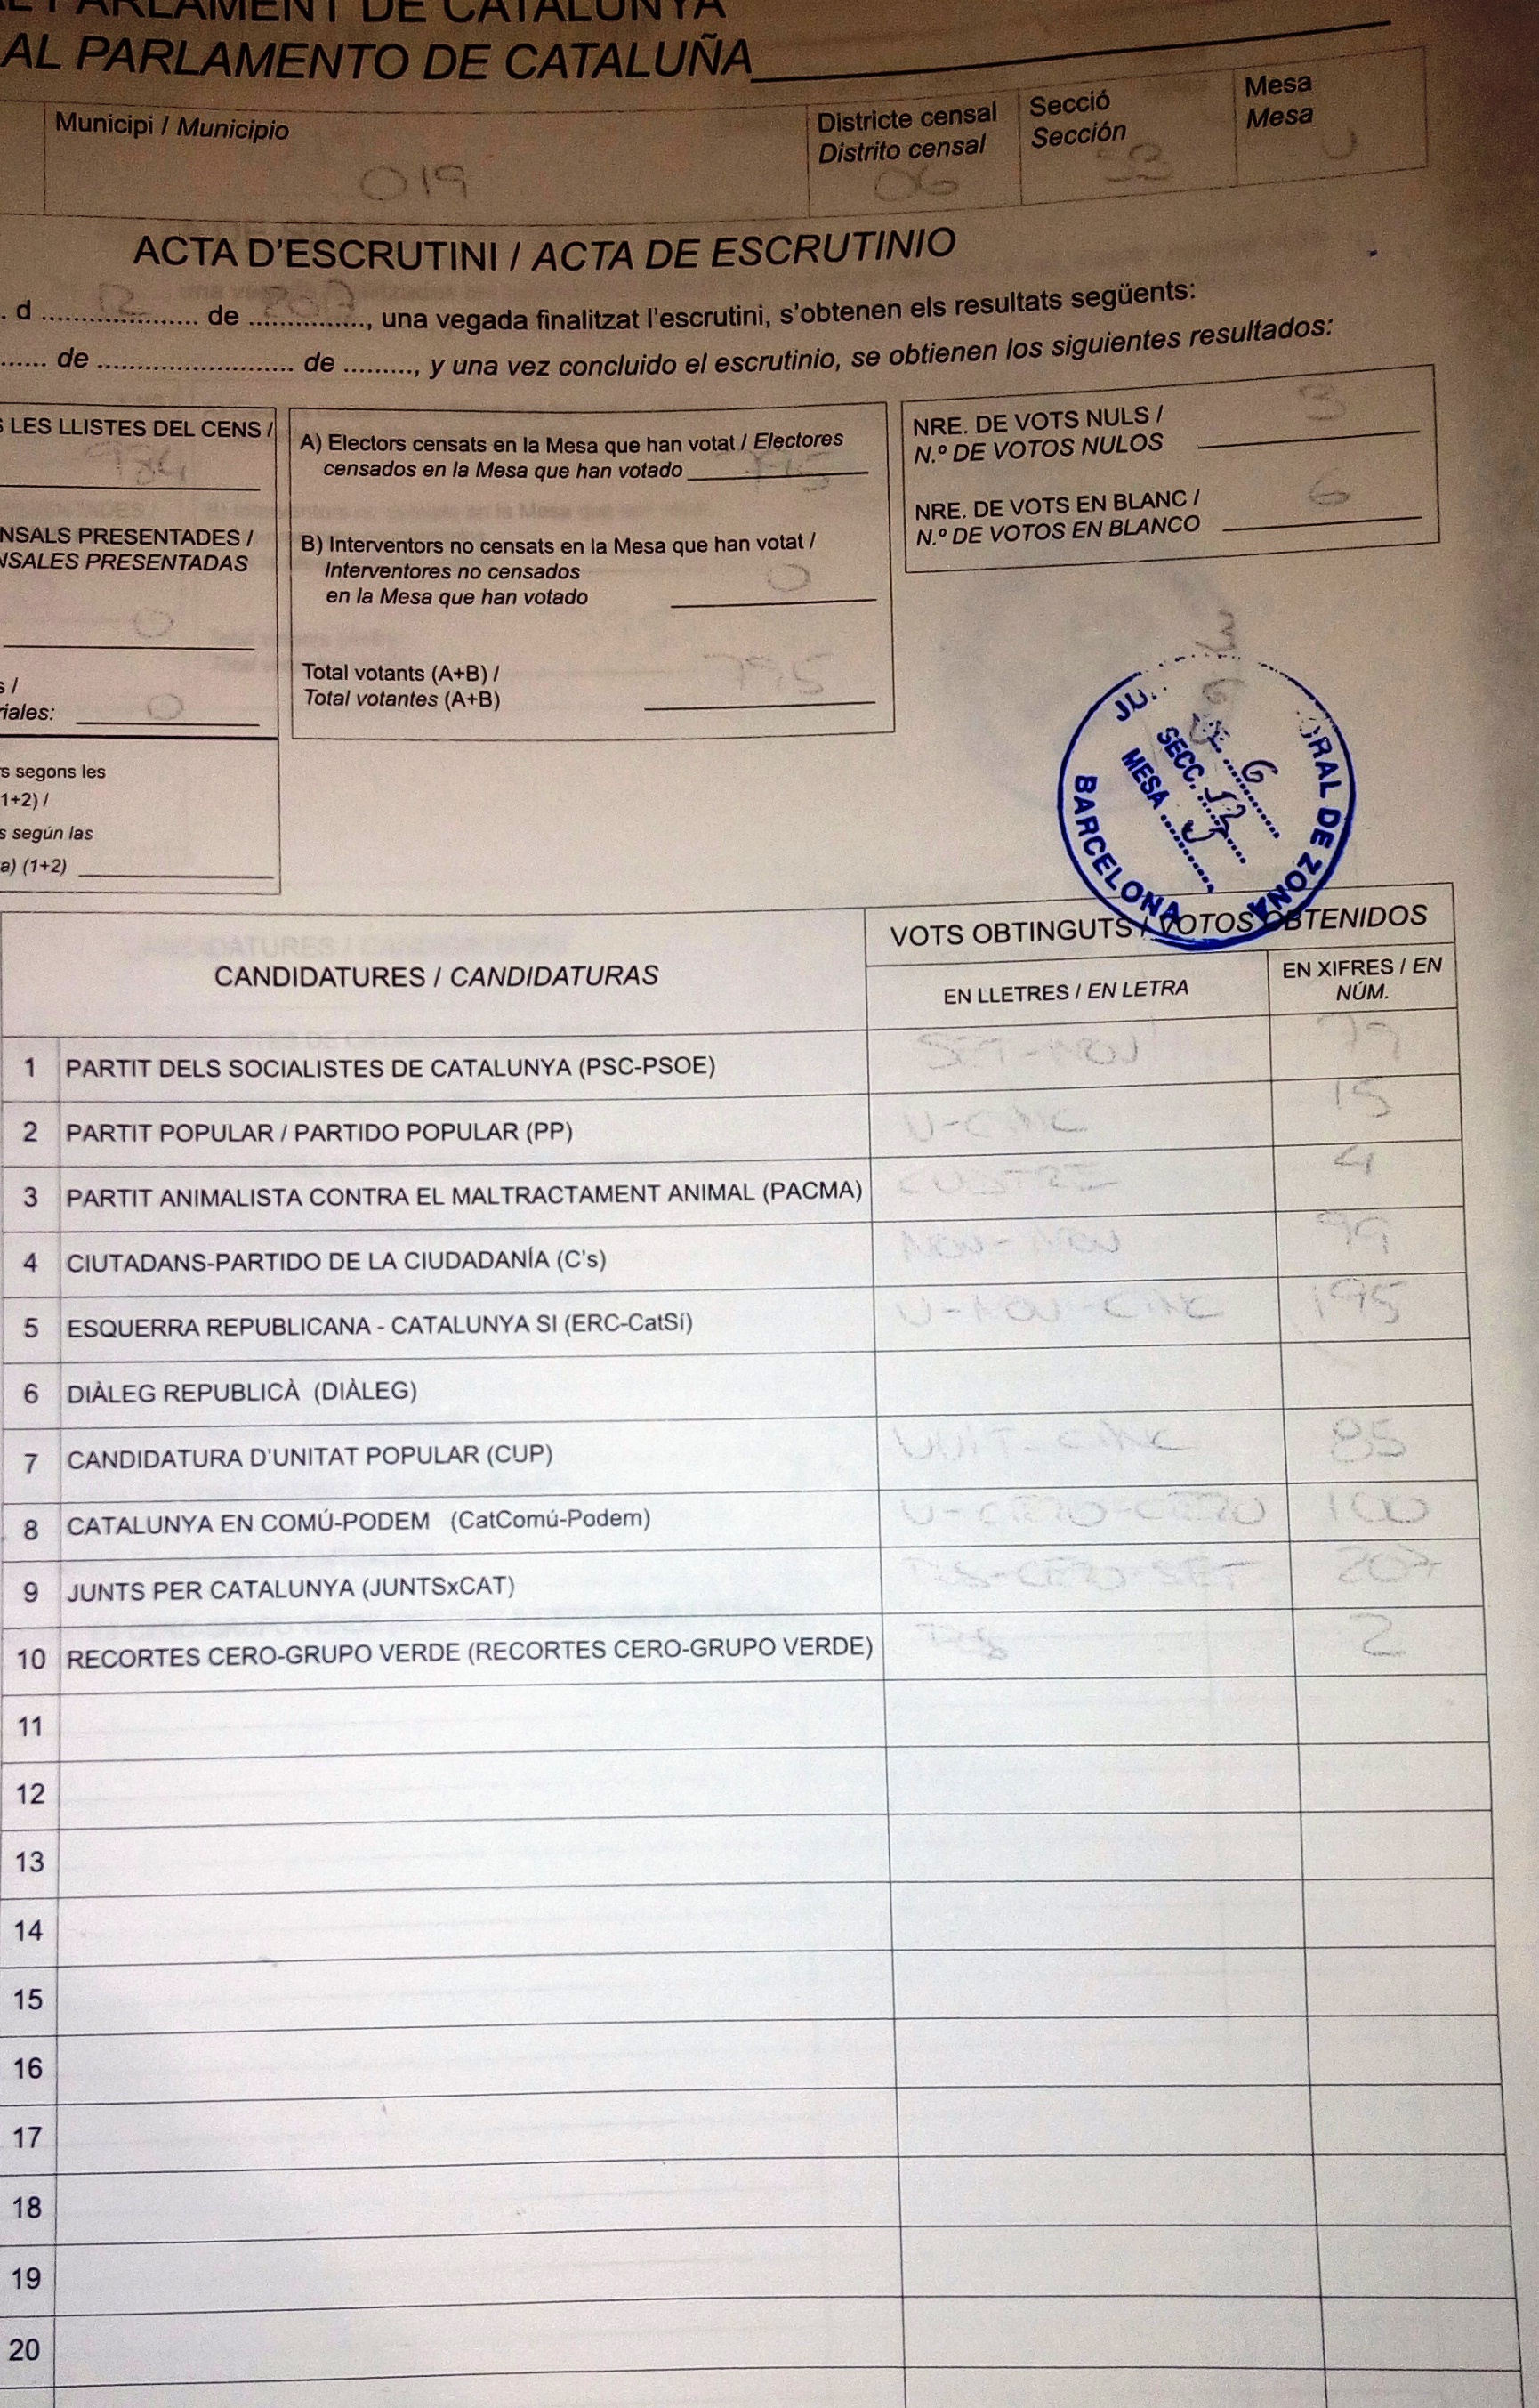 AL PARLAMENT DE CATALUNYA
AL PARLAMENTO DE CATALUÑA
Municipi / Municipio
019
Districte censal
Distrito censal
06
Secció
Sección
53
Mesa
Mesa
U
ACTA D'ESCRUTINI / ACTA DE ESCRUTINIO
. d .................... 12 de ............... 2017, una vegada finalitzat l'escrutini, s'obtenen els resultats següents:
...... de ......................... de ........., y una vez concluido el escrutinio, se obtienen los siguientes resultados:
S LES LLISTES DEL CENS /
984
NSALS PRESENTADES /
NSALES PRESENTADAS
0
s /
riales: 0
rs segons les
1+2) /
s según las
a) (1+2)
A) Electors censats en la Mesa que han votat / Electores
censados en la Mesa que han votado 795
B) Interventors no censats en la Mesa que han votat /
Interventores no censados
en la Mesa que han votado 0
Total votants (A+B) /
Total votantes (A+B) 795
NRE. DE VOTS NULS /
N.º DE VOTOS NULOS 3
NRE. DE VOTS EN BLANC /
N.º DE VOTOS EN BLANCO 6
3
6
JU ORAL DE ZONA
6
SECC. 53
MESA U
BARCELONA
CANDIDATURES / CANDIDATURAS
VOTS OBTINGUTS / VOTOS OBTENIDOS
EN LLETRES / EN LETRA
EN XIFRES / EN
NÚM.
1 PARTIT DELS SOCIALISTES DE CATALUNYA (PSC-PSOE) SET-NOU 79
2 PARTIT POPULAR / PARTIDO POPULAR (PP) U-CINC 15
3 PARTIT ANIMALISTA CONTRA EL MALTRACTAMENT ANIMAL (PACMA) 4
4 CIUTADANS-PARTIDO DE LA CIUDADANÍA (C's) NOU-NOU 99
5 ESQUERRA REPUBLICANA - CATALUNYA SI (ERC-CatSí) U-NOU-CINC 195
6 DIÀLEG REPUBLICÀ (DIÀLEG)
7 CANDIDATURA D'UNITAT POPULAR (CUP) VUIT-CINC 85
8 CATALUNYA EN COMÚ-PODEM (CatComú-Podem) U-CERO-CERO 100
9 JUNTS PER CATALUNYA (JUNTSxCAT) DOS-CERO-SET 207
10 RECORTES CERO-GRUPO VERDE (RECORTES CERO-GRUPO VERDE) DOS 2
11
12
13
14
15
16
17
18
19
20